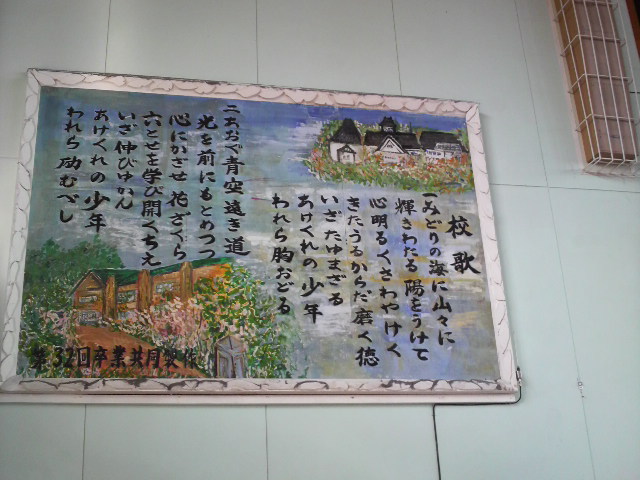 校歌
一みどりの海に山々に
輝きわたる 陽をうけて
心明るくさわやけく
きたうるからだ 磨く徳
いざたゆまざる
あけくれの少年
われら胸おどる
二あおぐ青空遠き道
光を前にもとめつつ
心にかざせ 花ざくら
六とせを学び開くちえ
いざ伸びゆかん
あけくれの少年
われら励むべし
第32回卒業共同製作